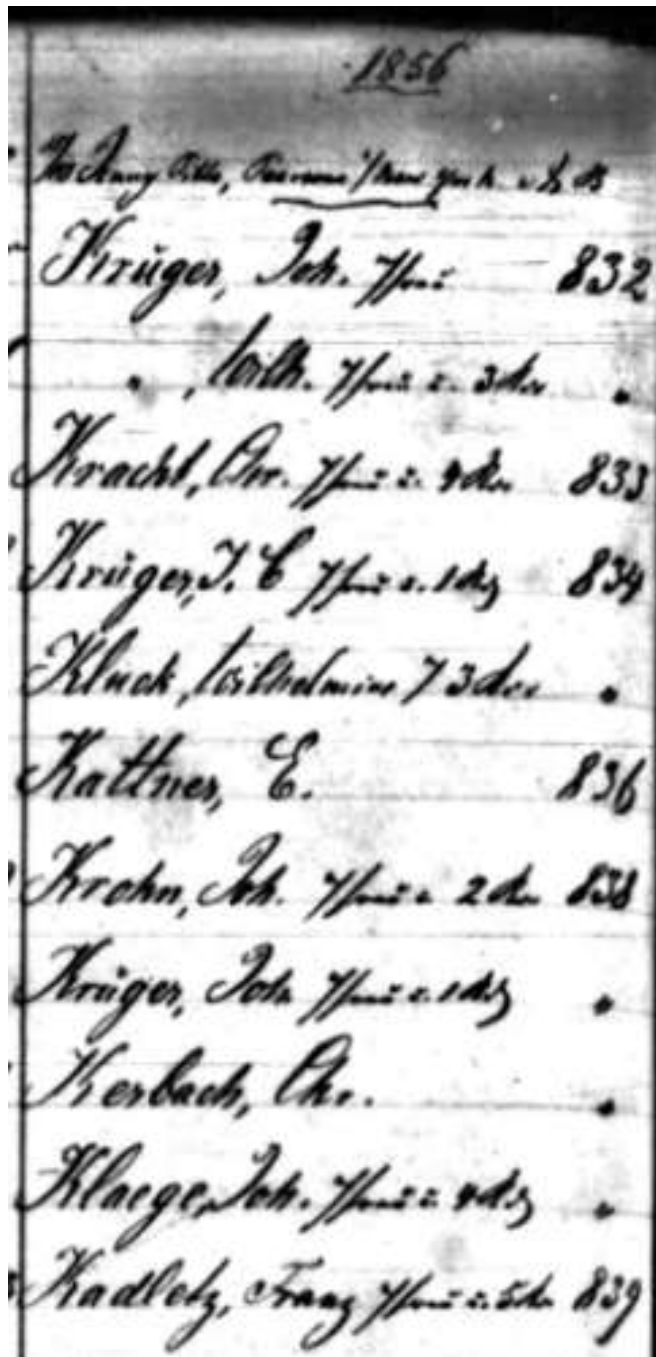 1856
Krüger, Joh. Frau 832
" , Wilh. Frau u. 3 Kdr "
Kracht, Chr. Frau u. 4 Kdr 833
Krüger, J. C Frau u. 1 Kd 834
Kluck, Wilhelmine 3 Kdr "
Kattner, E. 836
Krohn, Joh. Frau u 2 Kdr 838
Krüger, Joh Frau u. 1 Kd "
Kerbach, Chr. "
Klaege, Joh. Frau u. 4 Kd "
Kadletz, Franz Frau u. 5 Kdr 839